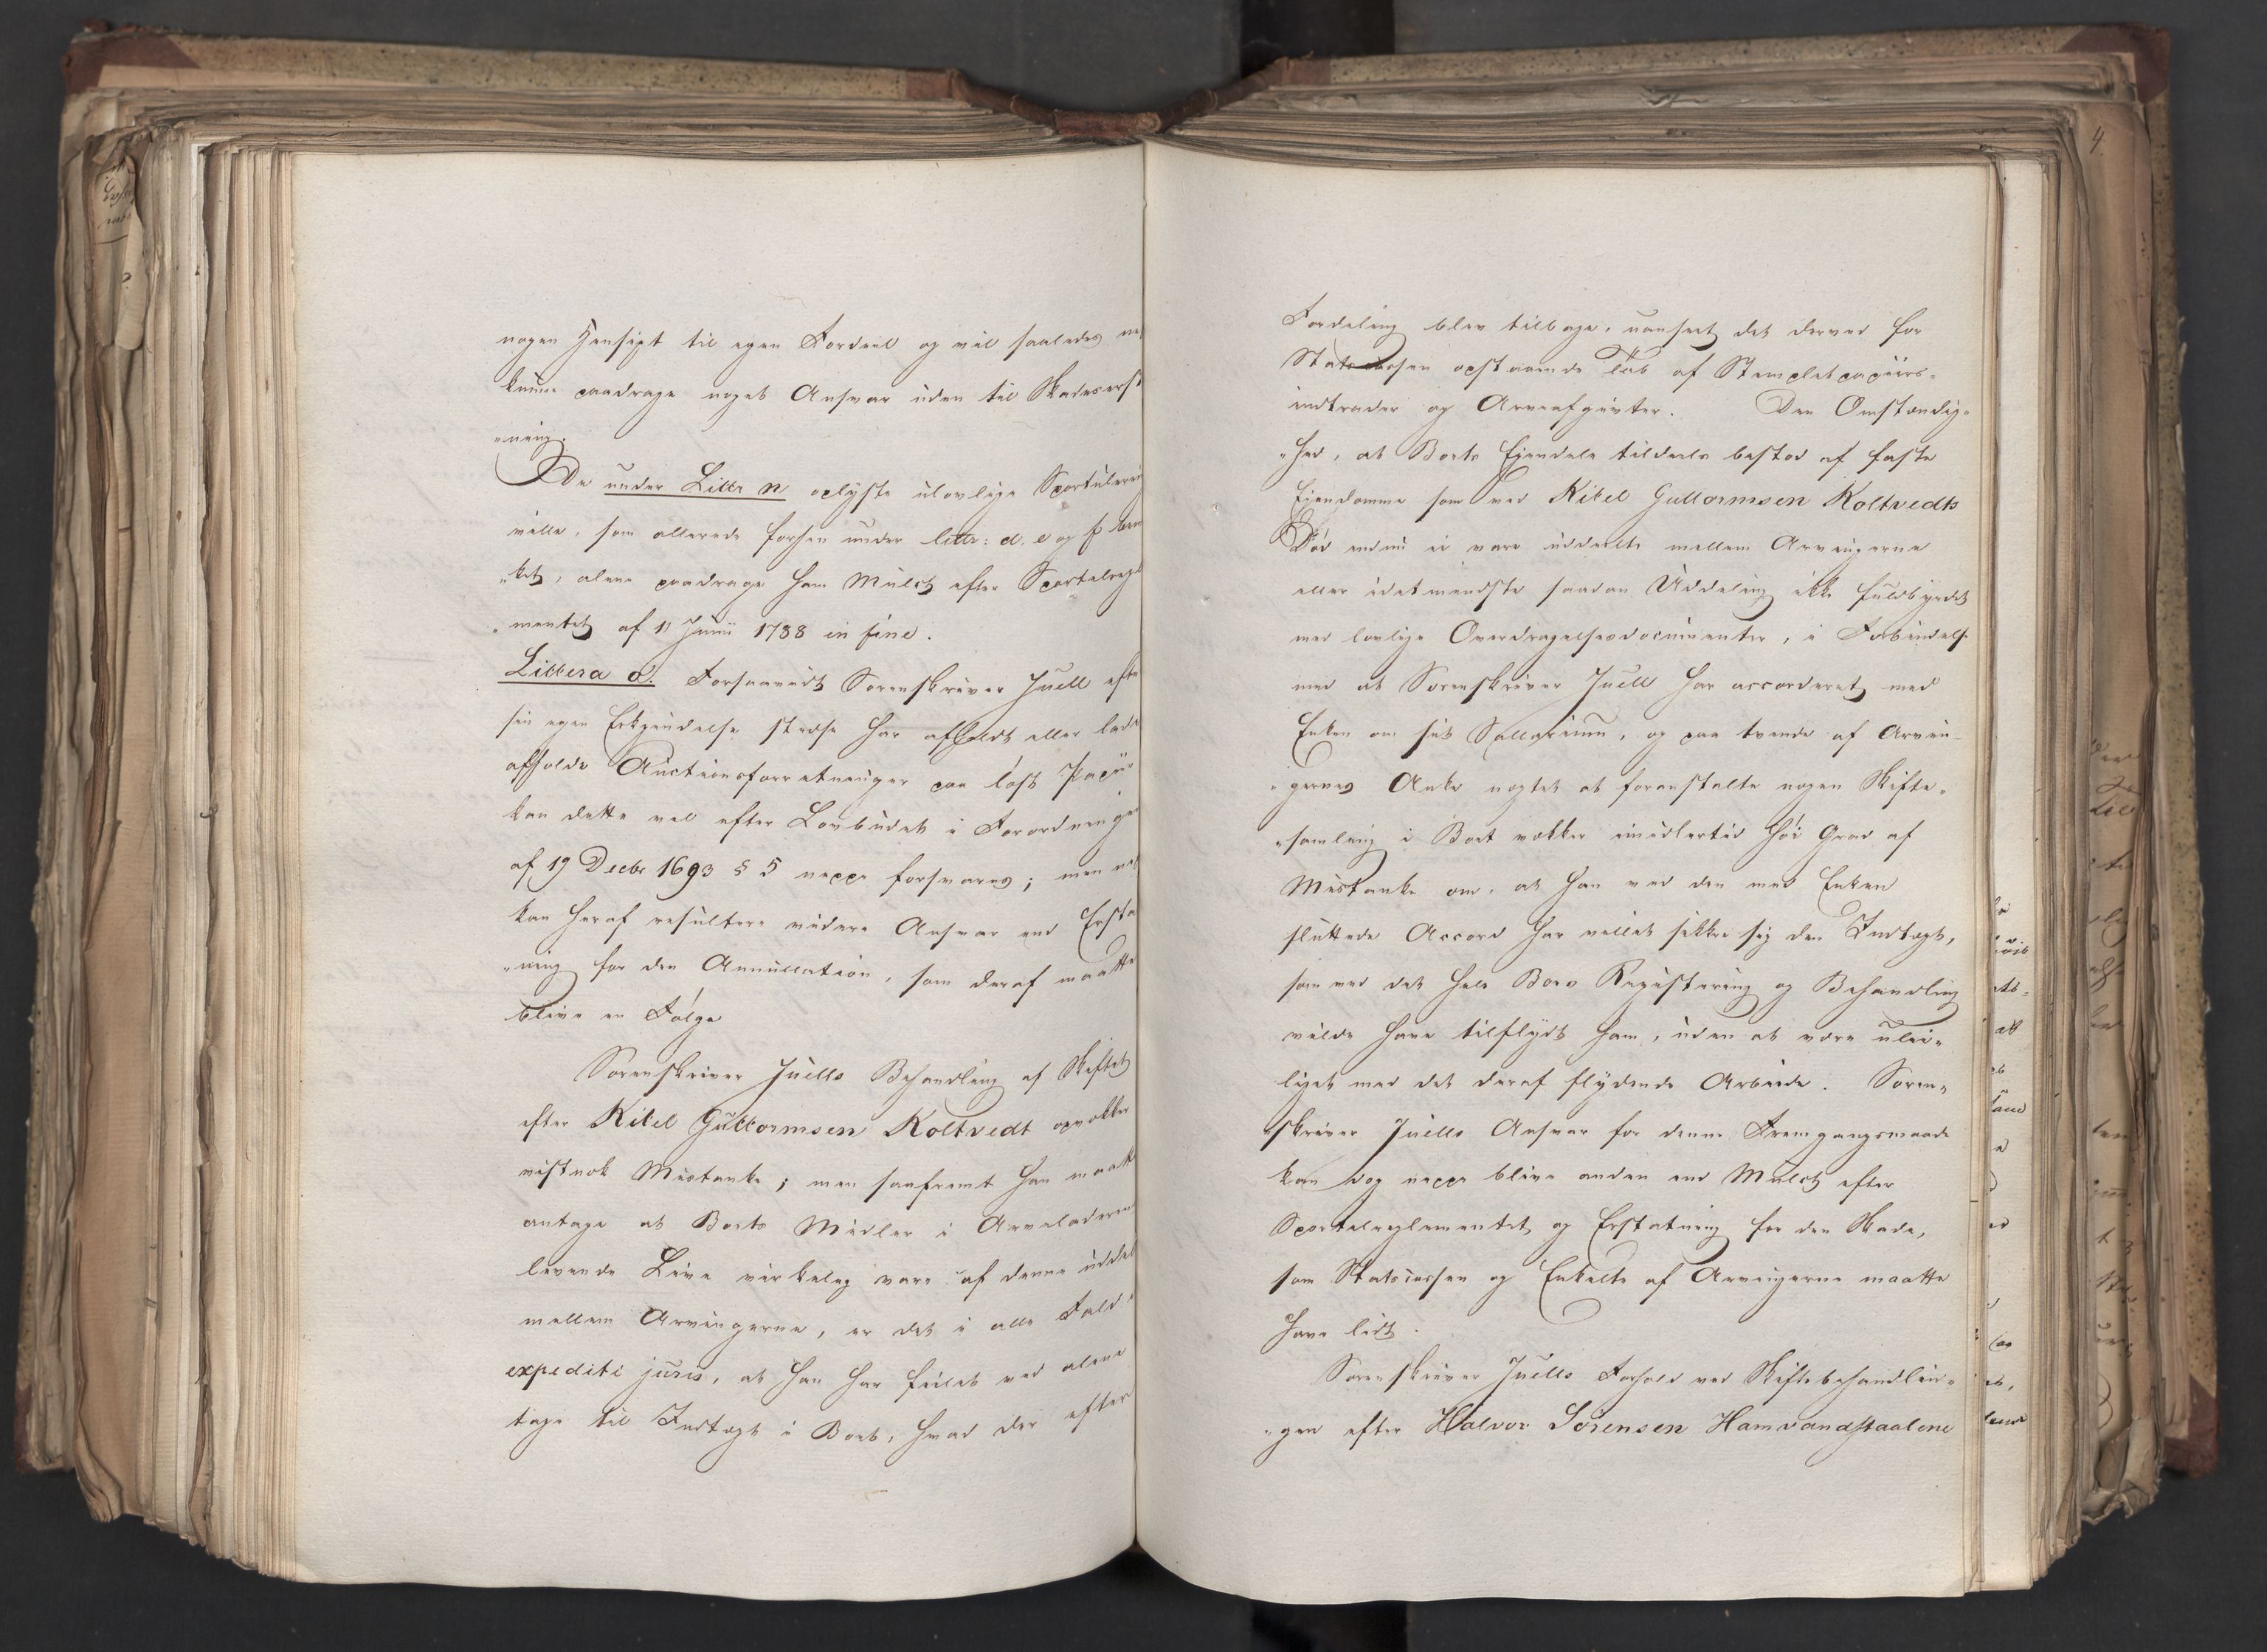 nogen Hensigt til egen Fordeel og vil saaledes
kunne paadrage noget Ansvar uden til Skadeserst
"ning.
De under Littr n oplyste ulovlige Sportulerin
ville, som allerede forhen under littr: d. e og f bem
"ket, alene paadrage ham Mulct efter Sportelregl
"mentet af 11 Junii 1788 in fine.
Littera o. Forsaavidt Sorenskriver Juell efter
sin egen Erkjendelse stedse har afholdt eller lade
afholde Auctionsforretninger paa løst Papiir
kan dette vel efter Lovbudet i Forordningen
af 19 Decbr 1693 § 5 neppe forsvares; men
kan heraf resultere videre Ansvar end Ersta
"ning for den Annullation, som deraf maatte
blive en Følge
Sorenskriver Juells Behandling af Skiftet
efter Kitel Guttormsen Koltvedt opvækker
vistnok Mistanke; men saafremt han maatte
antage at Boets Midler i Arveladerens
levende Live virkelig vare af denne uddel
mellem Arvingerne, er det i alle Fald
expediti juris, at han har feilet ved alene
tage til Indtægt i Boet, hvad der efter
Fordeling blev tilbage, uanseet det derved for
Statscassen opstaaende Tab af Stempletpapiirs-
indtrader og Arveafgivter. Den Omstændig-
"hed, at Boets Ejendele tildeels bestod af faste
Ejendomme som ved Kitel Guttormsen Koltvedts
Død endnu ei vare uddeelte mellem Arvingerne
eller idetmindste saadan Uddeling ikke fuldbyrdet
med lovlige Overdragelsesdocumenter, i Forbindelse
med at Sorenskriver Juell har accorderet med
Enken om sit Sallarium, og paa tvende af Arvin-
"gernes Anke negtet at foranstalte nogen Skifte-
"samling i Boet vækker imidlertid høi Grad af
Mistanke om, at han ved den med Enken
sluttede Accord har villet sikkre sig den Indtægt,
som ved det hele Boes Registering og Behandling
vilde have tilflydt ham, uden at være ulei-
liget med det deraf flydende Arbeide. Soren-
"skriver Juells Ansvar for denne Fremgangsmaade
kan dog neppe blive anden end Mulct efter
Sportelreglementet og Erstatning for den Skade,
som Statscassen og Enkelte af Arvingerne maatte
have lidt.
Sorenskriver Juells Forhold ved Skiftebehandlin-
"gen efter Halvor Sørensen Hamvandstaalene